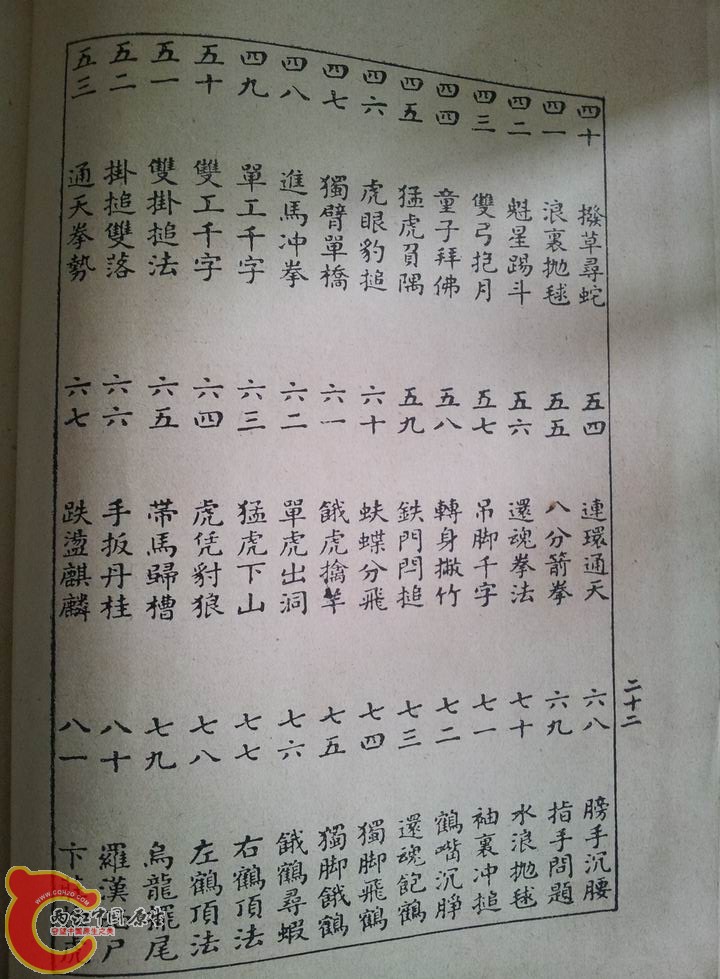 四十 撥草尋蛇
四一 浪裏抛毬
四二 魁星踢斗
四三 雙弓抱月
四四 童子拜佛
四五 猛虎負隅
四六 虎眼豹搥
四七 獨臂單橋
四八 進馬冲拳
四九 單工千字
五十 雙工千字
五一 雙掛搥法
五二 掛搥雙落
五三 通天拳勢
五四 連環通天
五五 八分箭拳
五六 還魂拳法
五七 吊脚千字
五八 轉身撒竹
五九 鉄門閂搥
六十 蚨蝶分飛
六一 餓虎擒羊
六二 單虎出洞
六三 猛虎下山
六四 虎凭豺狼
六五 帶馬歸槽
六六 手扳丹桂
六七 跌盪麒麟
六八 膀手沉腰
六九 指手問題
七十 水浪抛毬
七一 袖裏冲搥
七二 鶴嘴沉睜
七三 還魂飽鶴
七四 獨脚飛鶴
七五 獨脚餓鶴
七六 餓鶴尋蝦
七七 右鶴頂法
七八 左鶴頂法
七九 烏龍擺尾
八十 羅漢 尸
八一 卞 虎
二十二
WWW.CQYZC.COM
两江中国原